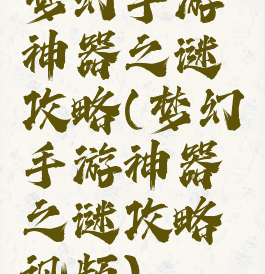 梦幻手游
神器之谜
攻略(梦幻
手游神器
之谜攻略
视频)